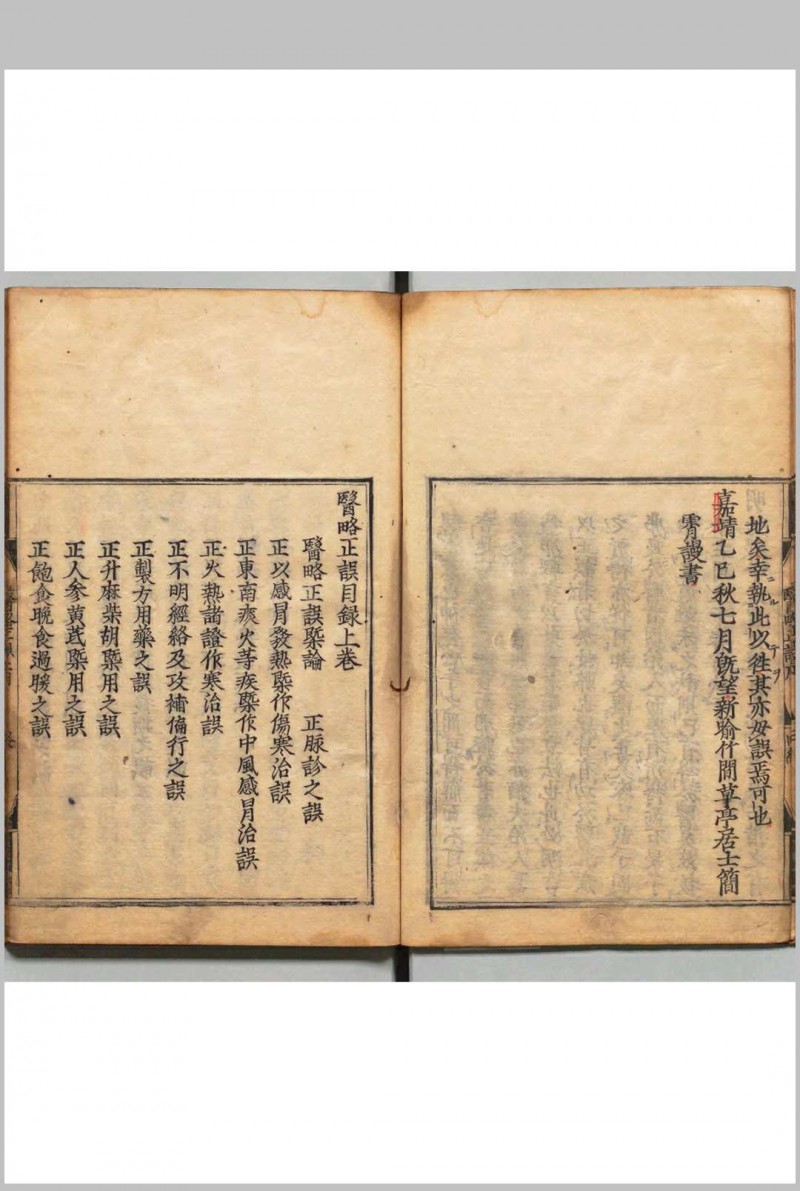 地矣幸執此以徃其亦毋誤焉可也
嘉靖乙巳秋七月旣望新喻竹間草亭居士簡
霄謾書
醫略正誤目録上卷
醫略正誤槩論　正脉診之誤
正以感冒發熱槩作傷寒治誤
正東南痰火等疾槩作中風感冒治誤
正火熱諸證作寒治誤
正不明經絡及攻補偏行之誤
正製方用藥之誤
正升麻柴胡槩用之誤
正人参黄芪槩用之誤
正飽食晚食過暖之誤